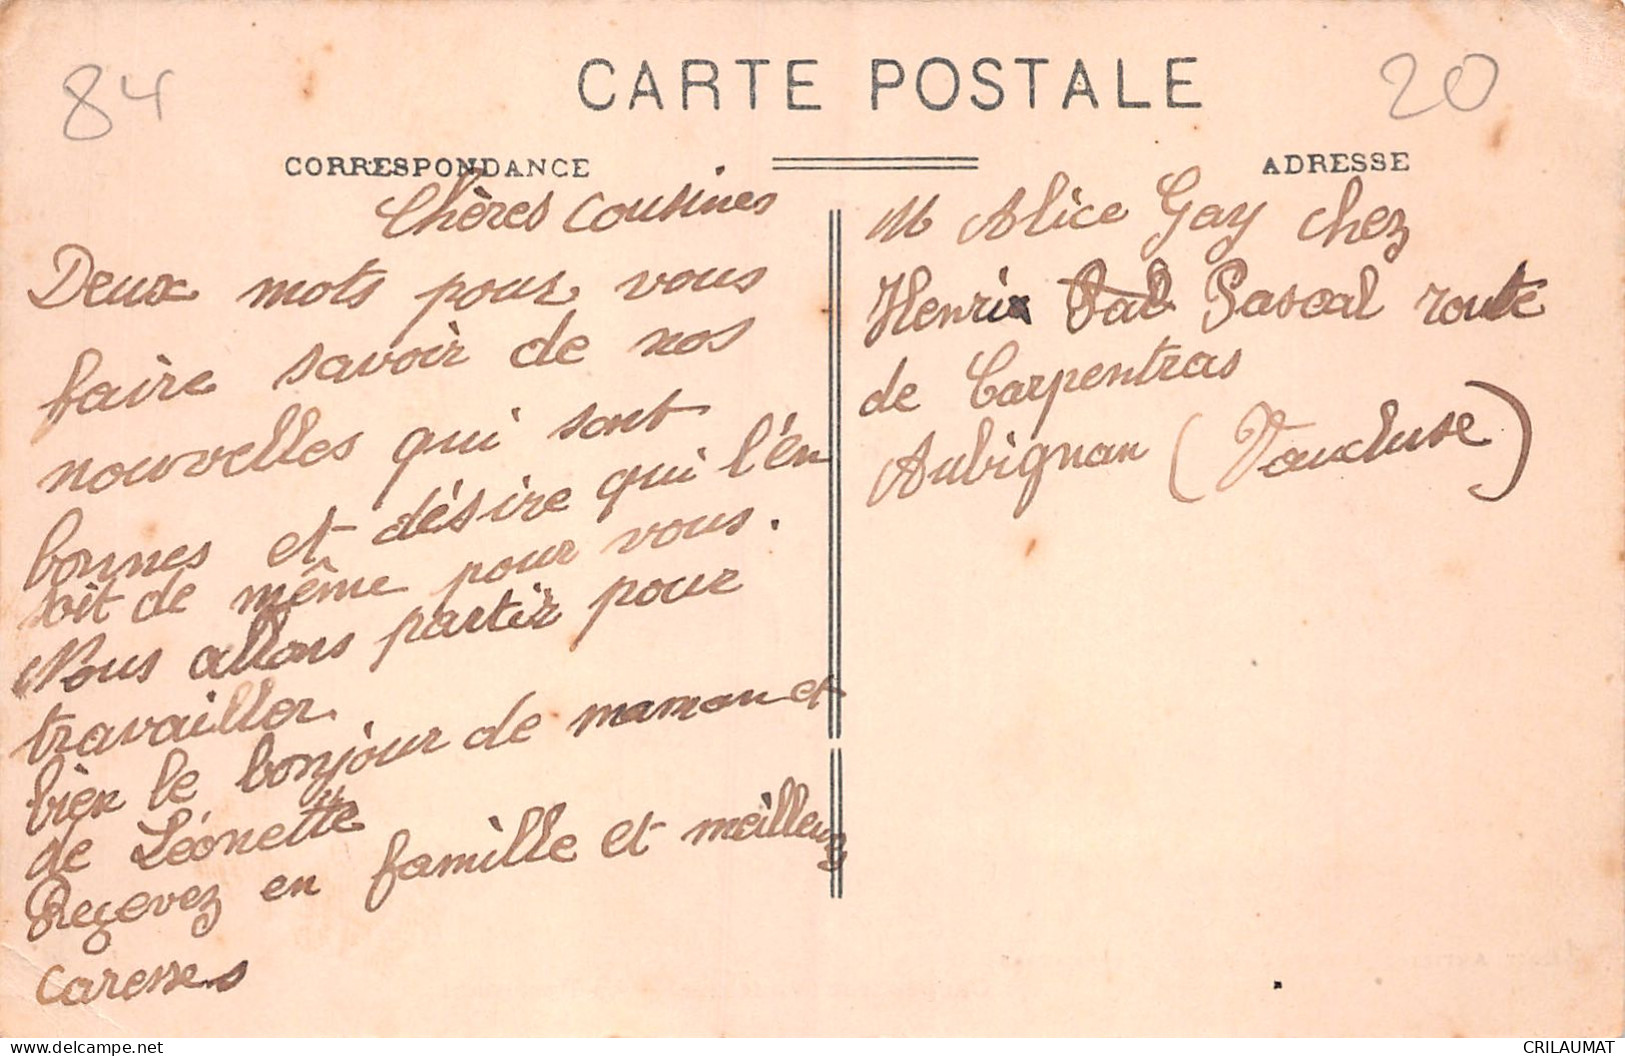 84
CARTE POSTALE
20
CORRESPONDANCE
ADRESSE
Chères cousines
Deux mots pour vous
faire savoir de nos
nouvelles qui sont
bonnes et désire qui l'en
soit de même pour vous.
Nous allons partir pour
travailler
bien le bonjour de maman et
de Léonette
Reçevez en famille et meilleurs
caresses
M Alice Gay chez
Henri Pascal route
de Carpentras
Aubignan (Vaucluse)
CRILAUMAT